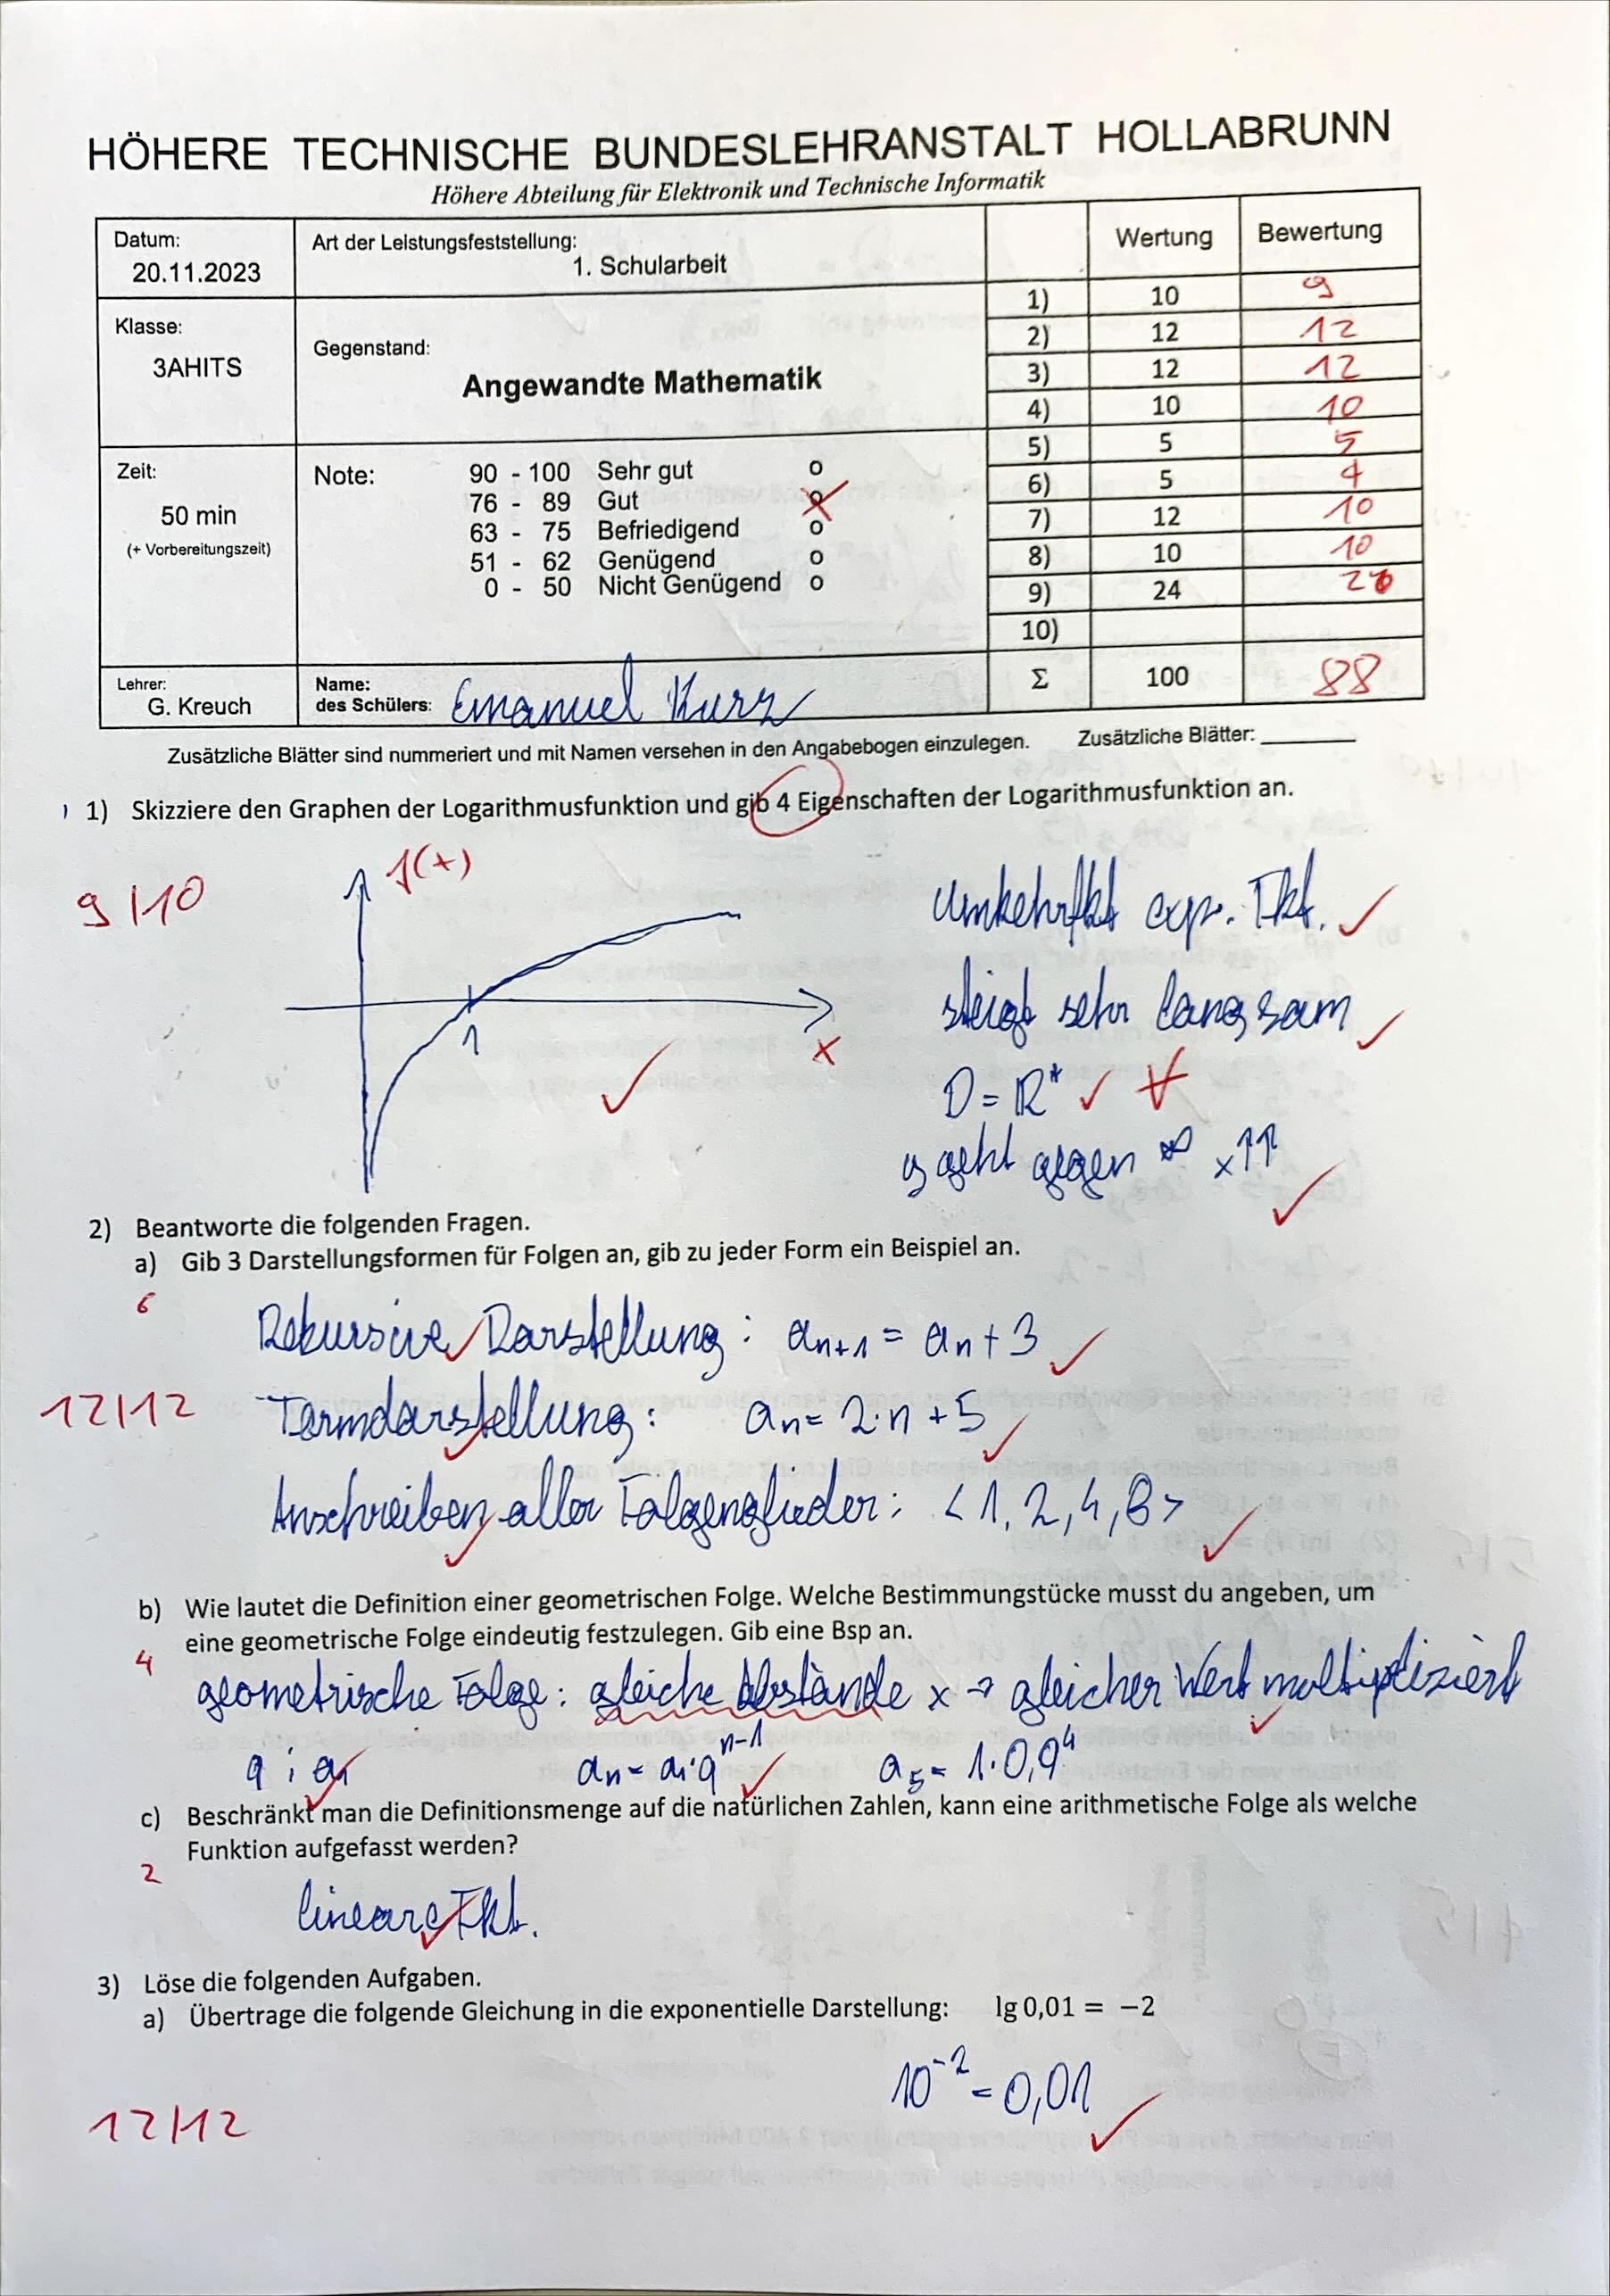 HÖHERE TECHNISCHE BUNDESLEHRANSTALT HOLLABRUNN
Höhere Abteilung für Elektronik und Technische Informatik
Datum:
20.11.2023
Art der Leistungsfeststellung:
1. Schularbeit
Wertung
Bewertung
Klasse:
3AHITS
Gegenstand:
Angewandte Mathematik
1) 10 9
2) 12 12
3) 12 12
4) 10 10
5) 5 5
6) 5 4
7) 12 10
8) 10 10
9) 24
10)
Zeit:
50 min
(+ Vorbereitungszeit)
Note:
90 - 100 Sehr gut o
76 - 89 Gut o
63 - 75 Befriedigend o
51 - 62 Genügend o
0 - 50 Nicht Genügend o
Lehrer:
G. Kreuch
Name:
des Schülers: Emanuel Kurz
Σ 100 88
Zusätzliche Blätter sind nummeriert und mit Namen versehen in den Angabebogen einzulegen. Zusätzliche Blätter: ______
1) Skizziere den Graphen der Logarithmusfunktion und gib 4 Eigenschaften der Logarithmusfunktion an.
9/10
f(x)
1
x
Umkehrfkt exp. Fkt. ✓
steigt sehr langsam ✓
D = R* ✓
y geht gegen ∞ x↑↑ ✓
2) Beantworte die folgenden Fragen.
a) Gib 3 Darstellungsformen für Folgen an, gib zu jeder Form ein Beispiel an.
6
Rekursive Darstellung: aₙ₊₁ = aₙ + 3 ✓
12/12
Termdarstellung: aₙ = 2·n + 5 ✓
Anschreiben aller Folgenglieder: <1, 2, 4, 8> ✓
b) Wie lautet die Definition einer geometrischen Folge. Welche Bestimmungstücke musst du angeben, um
eine geometrische Folge eindeutig festzulegen. Gib eine Bsp an.
4
geometrische Folge: gleiche Abstände x → gleicher Wert multipliziert
q ; a₁ aₙ = a₁·qⁿ⁻¹ ✓ a₅ = 1·0,9⁴
c) Beschränkt man die Definitionsmenge auf die natürlichen Zahlen, kann eine arithmetische Folge als welche
Funktion aufgefasst werden?
2
lineare Fkt.
3) Löse die folgenden Aufgaben.
a) Übertrage die folgende Gleichung in die exponentielle Darstellung: lg 0,01 = −2
10⁻² = 0,01 ✓
12/12